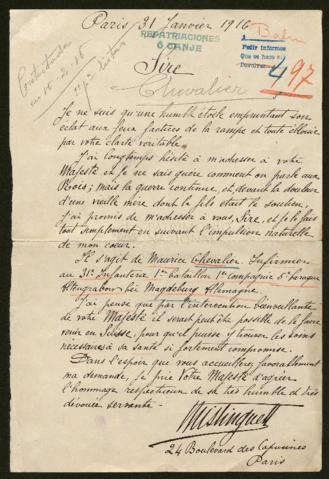 Paris 31 Janvier 1916
REPATRIACIONES
Ó CANJE
Pedir informes
497
Sire
Chevalier
Je ne suis qu'une humble étoile empruntant son
éclat aux feux factices de la rampe et toute éblouie
par votre clarté véritable.
J'ai longtemps hésité à m'adresser à votre
Majesté et je ne sais guère comment on parle aux
Rois; mais la guerre continue, et devant la douleur
d'une vieille mère dont le fils était le soutien,
j'ai promis de m'adresser à vous, Sire, et je le fais
tout simplement en suivant l'impulsion naturelle
de mon coeur.
Il s'agit de Maurice Chevalier. Infirmier
au 31e Infanterie 1er bataillon 1re compagnie 5e baraque
Altengrabow bei Magdeburg Allemagne.
J'ai pensé que par l'intervention bienveillante
de votre Majesté il serait peut être possible de le faire
venir en Suisse, pour qu'il puisse y trouver les soins
nécessaires à sa santé si fortement compromise.
Dans l'espoir que vous accueillerez favorablement
ma demande, je prie Votre Majesté d'agréer
l'hommage respectueux de sa très humble et très
dévouée servante.
Mistinguett
24 Boulevard des Capucines
Paris